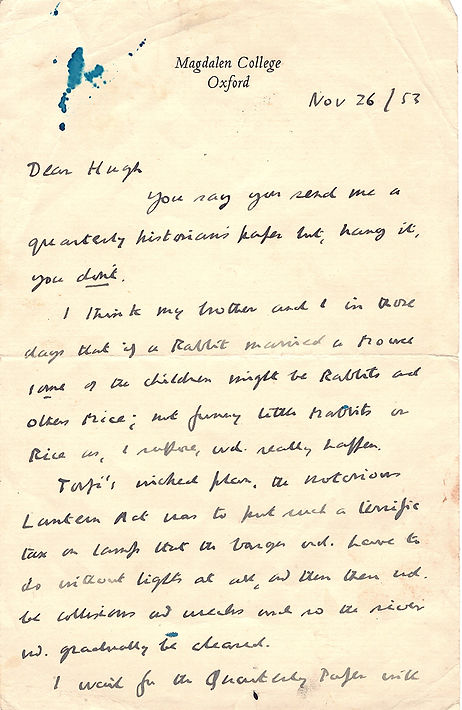 Magdalen College
Oxford
Nov 26/53
Dear Hugh
You say you send me a
quarterly historian's paper but, hang it,
you don't.
I think my brother and I in those
days that if a Rabbit married a Mouse
some of the children might be Rabbits and
others Mice; not funny little Mabbits or
Rice as, I suppose, wd. really happen.
Torfi's wicked plan, the notorious
Lantern Act was to put such a terrific
tax on lamps that the barges wd. have to
do without lights at all, and then there wd.
be collisions and wrecks and so the river
wd. gradually be cleared.
I wait for the Quarterly Paper with